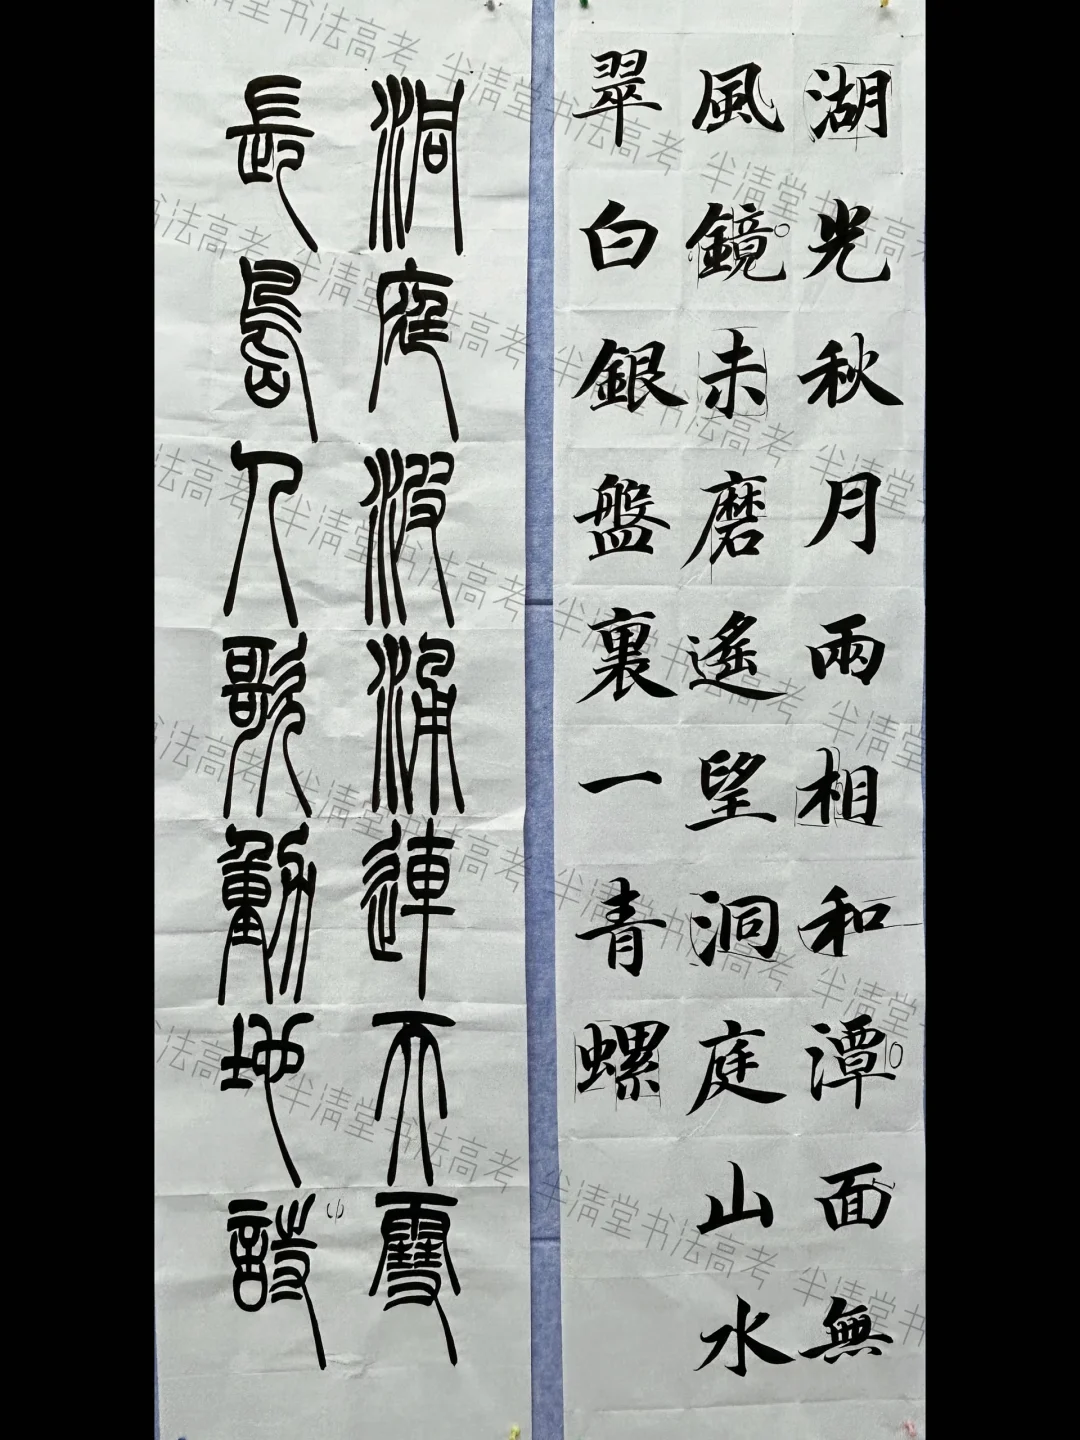 湖光秋月兩相和潭面無
風鏡未磨遙望洞庭山水
翠白銀盤裏一青螺
洞庭波涌連天雪
長島人歌動地詩
半清堂书法高考